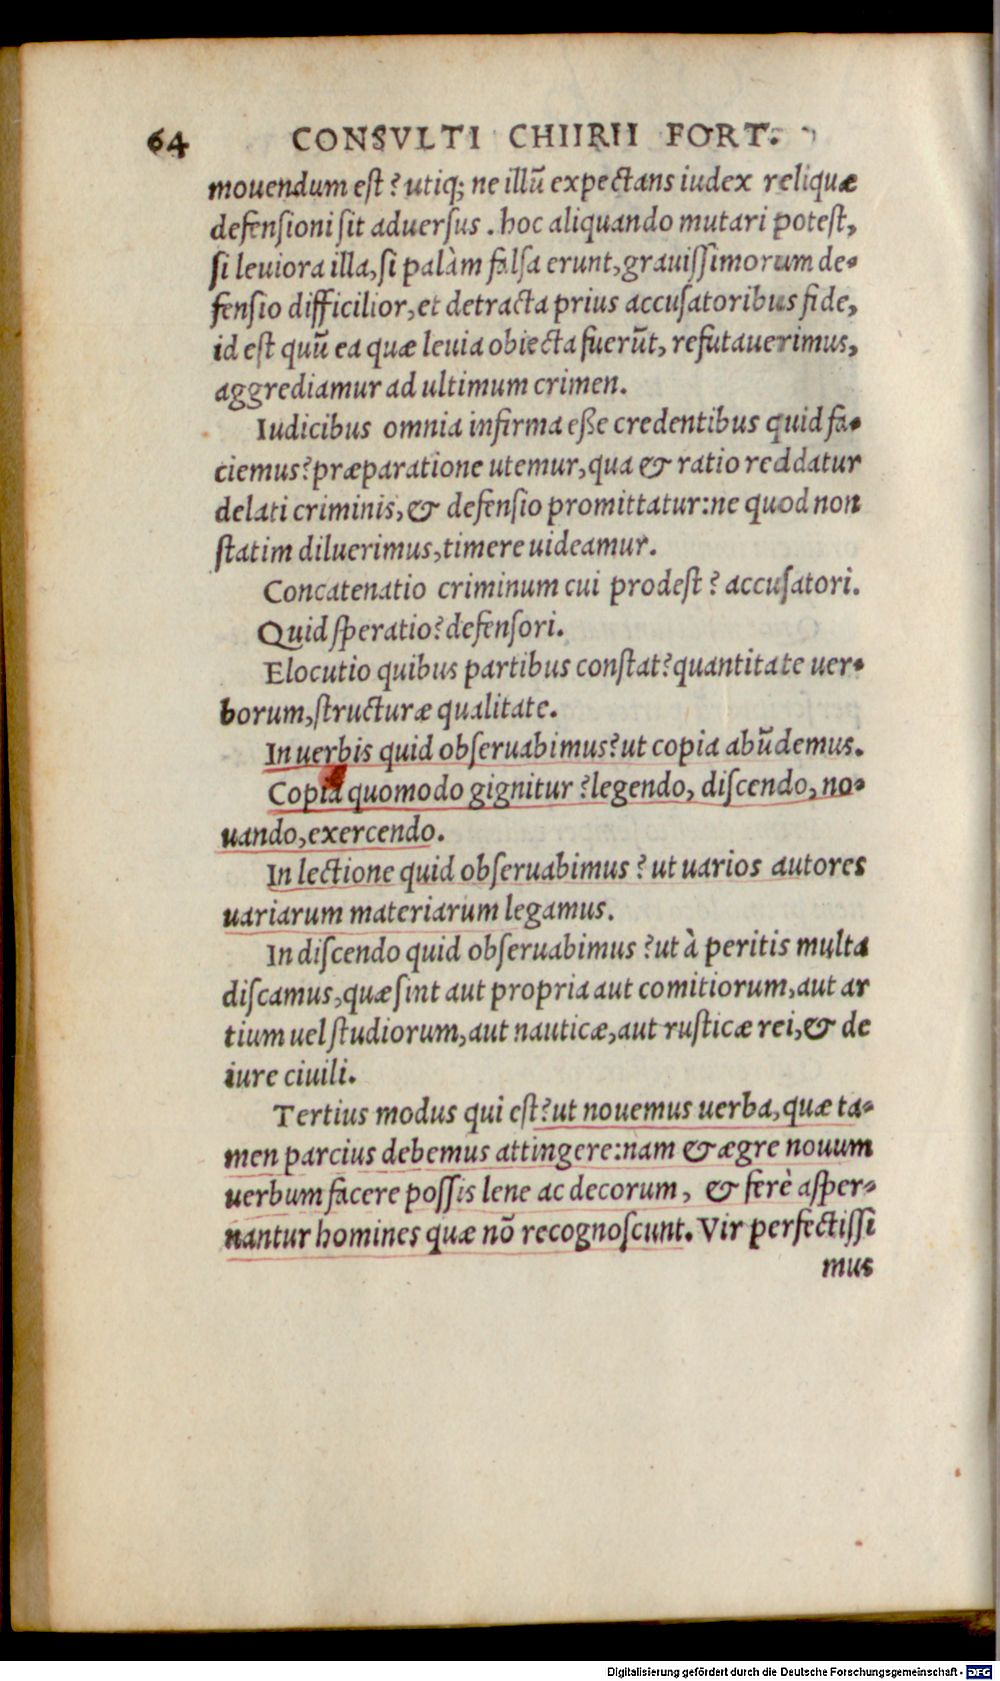 64 CONSVLTI CHIIRII FORT.
mouendum est? utiq; ne illũ expectans iudex reliquæ
defensioni sit aduersus. hoc aliquando mutari potest,
si leuiora illa, si palàm falsa erunt, grauissimorum de-
fensio difficilior, et detracta prius accusatoribus fide,
id est quũ ea quæ leuia obiecta fuerũt, refutauerimus,
aggrediamur ad ultimum crimen.
Iudicibus omnia infirma eße credentibus quid fa-
ciemus? præparatione utemur, qua & ratio reddatur
delati criminis, & defensio promittatur: ne quod non
statim diluerimus, timere uideamur.
Concatenatio criminum cui prodest? accusatori.
Quid speratio? defensori.
Elocutio quibus partibus constat? quantitate uer-
borum, structuræ qualitate.
In uerbis quid obseruabimus? ut copia abũdemus.
Copia quomodo gignitur? legendo, discendo, no-
uando, exercendo.
In lectione quid obseruabimus? ut uarios autores
uariarum materiarum legamus.
In discendo quid obseruabimus? ut à peritis multa
discamus, quæ sint aut propria aut comitiorum, aut ar
tium uel studiorum, aut nauticæ, aut rusticæ rei, & de
iure ciuili.
Tertius modus qui est? ut nouemus uerba, quæ ta-
men parcius debemus attingere: nam & ægre nouum
uerbum facere possis lene ac decorum, & ferè asper-
nantur homines quæ nõ recognoscunt. Vir perfectissi
mus
Digitalisierung gefördert durch die Deutsche Forschungsgemeinschaft - DFG